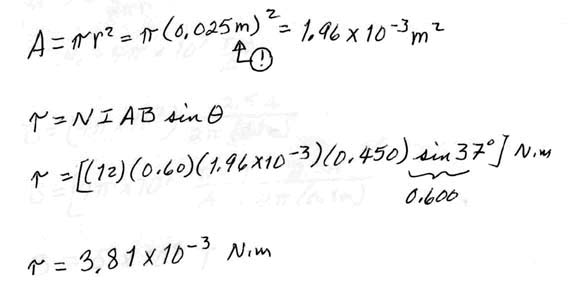 A = πr² = π(0.025m)² = 1.96 x 10⁻³ m²
↑ !
τ = N I A B sin θ
τ = [(12)(0.60)(1.96x10⁻³)(0.450) sin 37°] N.m
0.600
τ = 3.81 x 10⁻³ N.m